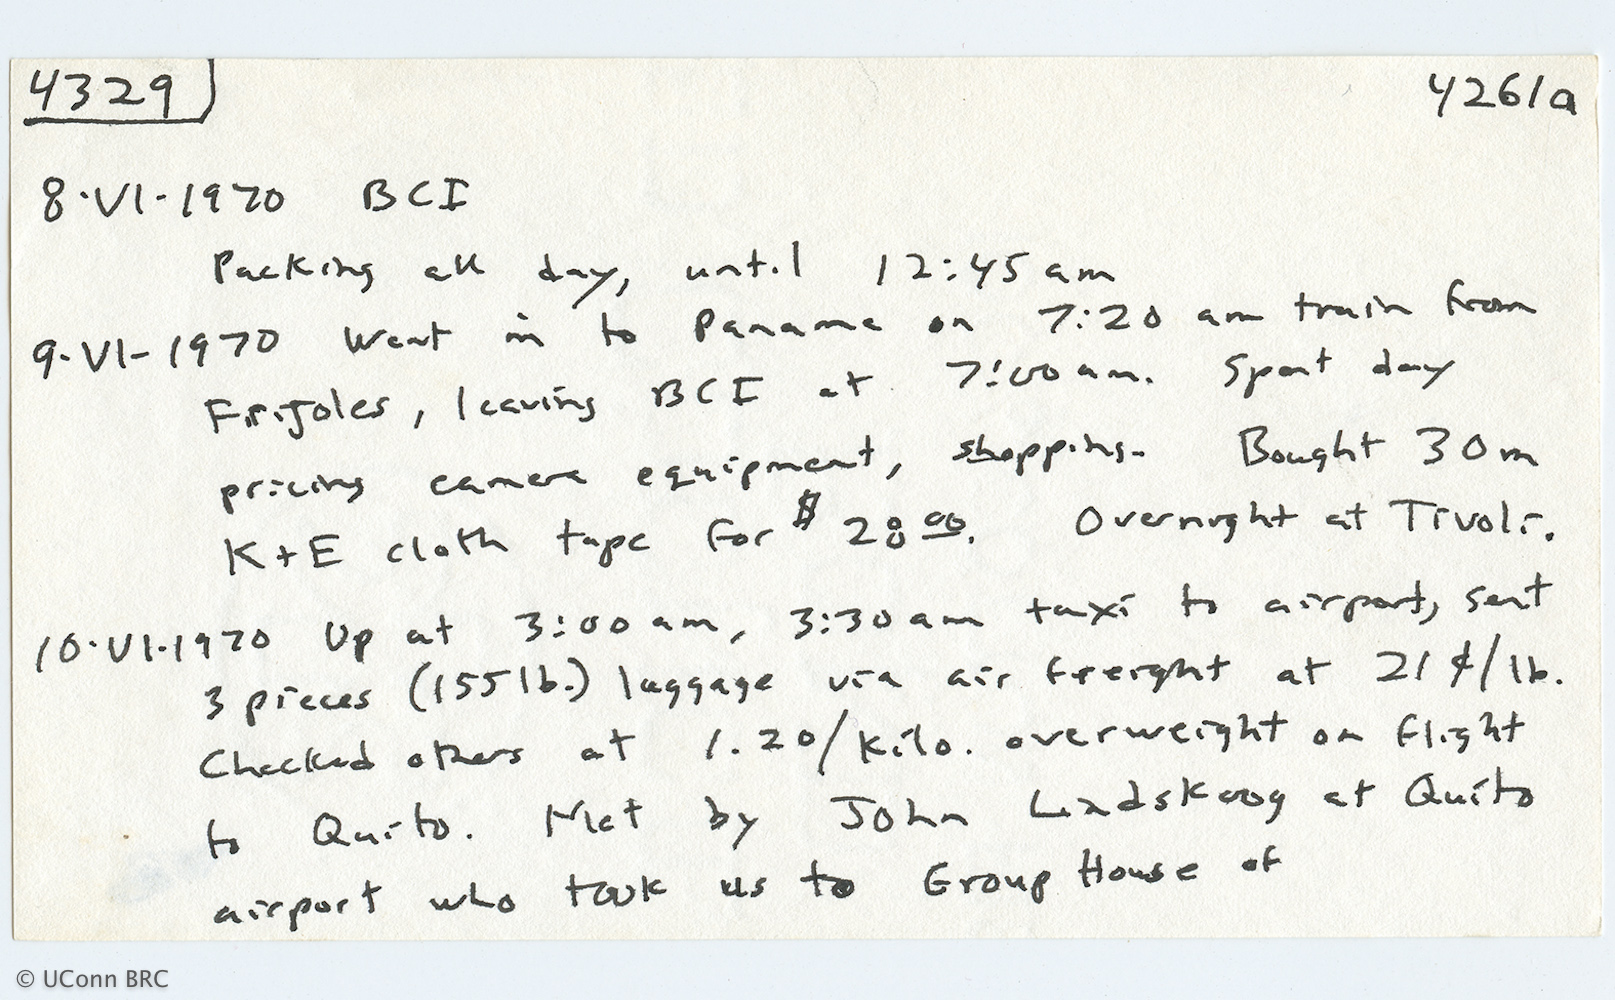 4329
4261a
8·VI·1970 BCI
Packing all day, until 12:45 am
9·VI-1970 Went in to Panama on 7:20 am train from
Frijoles, leaving BCI at 7:00 am. Spent day
pricing camera equipment, shopping. Bought 30 m
K+E cloth tape for $28 00. Overnight at Tivoli.
10·VI·1970 Up at 3:00 am, 3:30 am taxi to airport, sent
3 pieces (155 lb.) luggage via air freight at 21 ¢/lb.
Checked others at 1.20/kilo. overweight on flight
to Quito. Met by John Lindskoog at Quito
airport who took us to Group House of
© UConn BRC